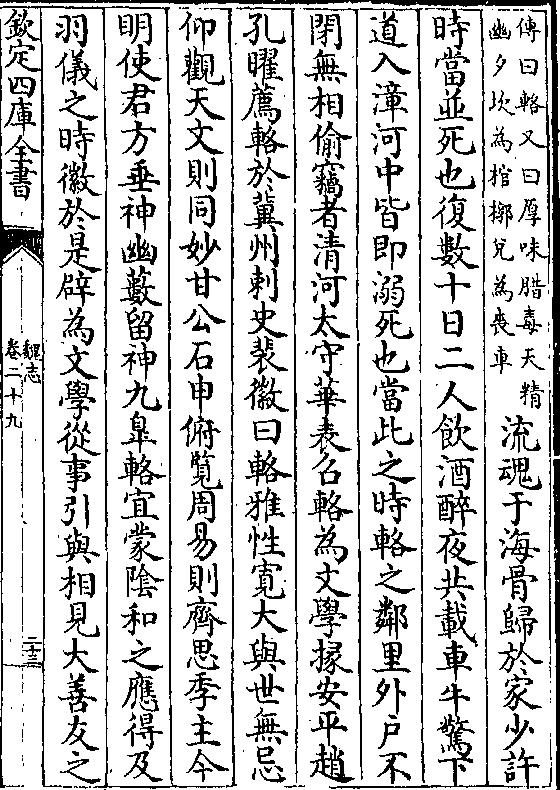 傳曰輅又曰厚味腊毒天精
幽夕坎為棺槨兌為喪車
流魂于海骨歸於家少許
時當並死也復數十日二人飲酒醉夜共載車牛驚下
道入漳河中皆即溺死也當此之時輅之鄰里外戶不
閉無相偷竊者清河太守華表召輅為文學掾安平趙
孔曜薦輅於冀州刺史裴徽曰輅雅性寛大與世無忌
仰觀天文則同妙甘公石申俯覧周易則齊思季主今
明使君方垂神幽藪留神九皐輅宜蒙陰和之應得及
羽儀之時徽於是辟為文學從事引與相見大善友之
欽定四庫全書
魏志
卷二十九
二十三